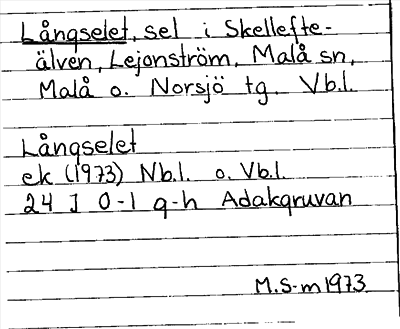 Långselet, sel i Skellefte-
älven, Lejonström, Malå sn,
Malå o. Norsjö tg. Vb.l.
Långselet
ek (1973) Nb.l. o. Vb.l.
24 J 0-1 g-h Adakgruvan
M.S-m 1973